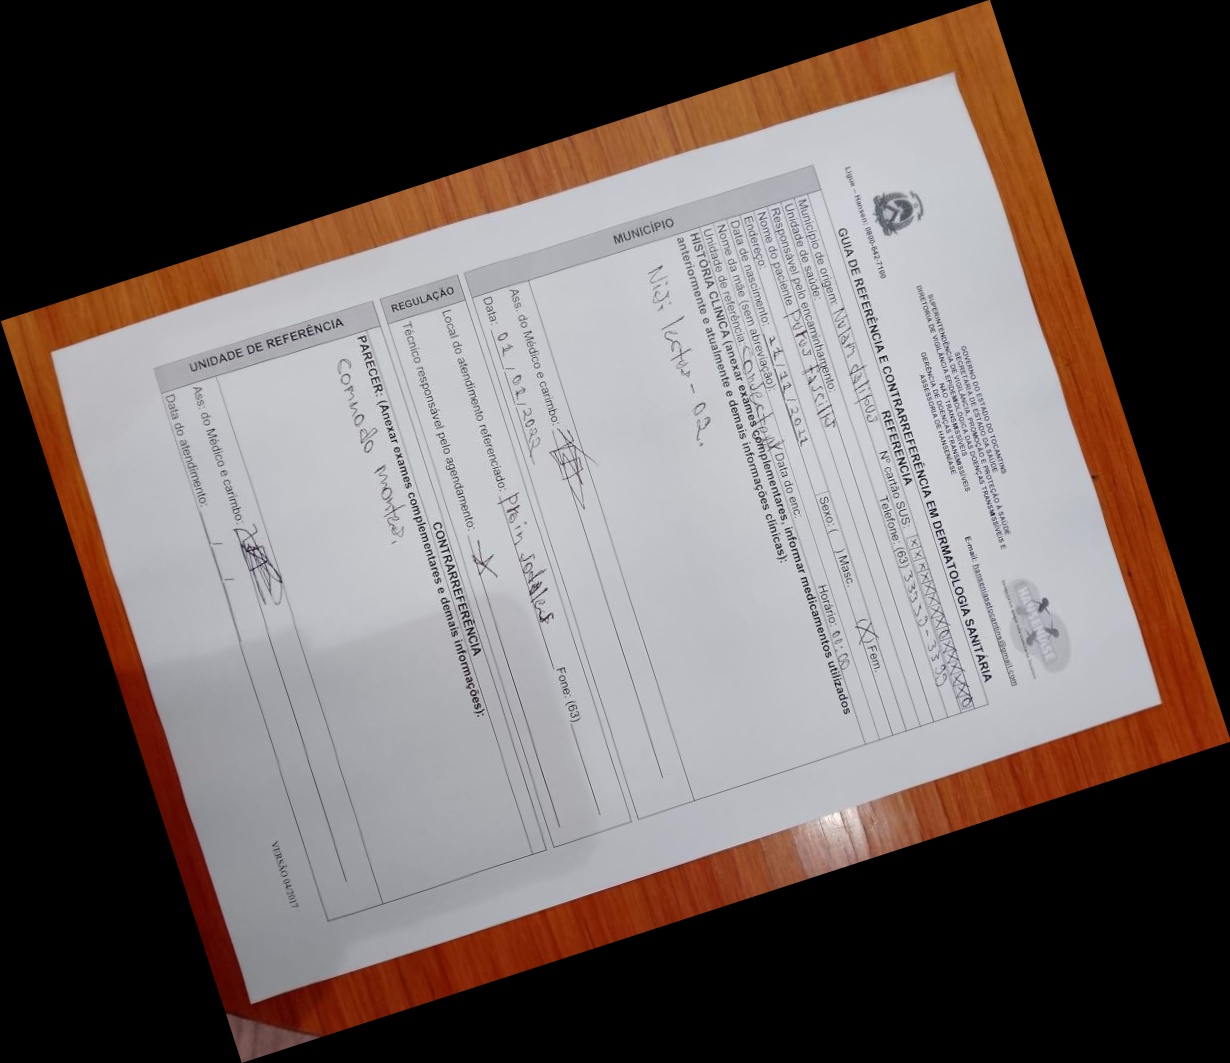 GOVERNO DO ESTADO DO TOCANTINS
SECRETARIA DE ESTADO DA SAÚDE
SUPERINTENDÊNCIA DE VIGILÂNCIA, PROMOÇÃO E PROTEÇÃO À SAÚDE
DIRETORIA DE VIGILÂNCIA EPIDEMIOLÓGICA DAS DOENÇAS TRANSMISSÍVEIS E
NÃO TRANSMISSÍVEIS
GERÊNCIA DE DOENÇAS TRANSMISSÍVEIS
ASSESSORIA DE HANSENÍASE
Ligue – Hansen: 0800-642-7100
E-mail: hanseniasetocantins@gmail.com
GUIA DE REFERÊNCIA E CONTRARREFERÊNCIA EM DERMATOLOGIA SANITÁRIA
REFERENCIA
MUNICÍPIO
Município de origem: Nulan dapibus
Unidade de saúde: Nº cartão SUS:
Responsável pelo encaminhamento Telefone: (63) 33333-3333
Nome do paciente purus fascilis
Endereço: Sexo: ( ) Masc. (X) Fem.
Data de nascimento: 11/11/2011
Nome da mãe (sem abreviação)
Unidade de referência: consectetur Data do enc. Horário: 00:00
HISTÓRIA CLÍNICA (anexar exames complementares, informar medicamentos utilizados
anteriormente e atualmente e demais informações clínicas):
Nisi lectus - 02.
Ass. do Médico e carimbo:
Data: 01/01/2022
REGULAÇÃO
Local do atendimento referenciado: proin sodales Fone: (63)
Técnico responsável pelo agendamento:
UNIDADE DE REFERÊNCIA
CONTRARREFERÊNCIA
PARECER: (Anexar exames complementares e demais informações):
Commodo montes.
Ass. do Médico e carimbo:
Data do atendimento: / /
VERSÃO 04/2017